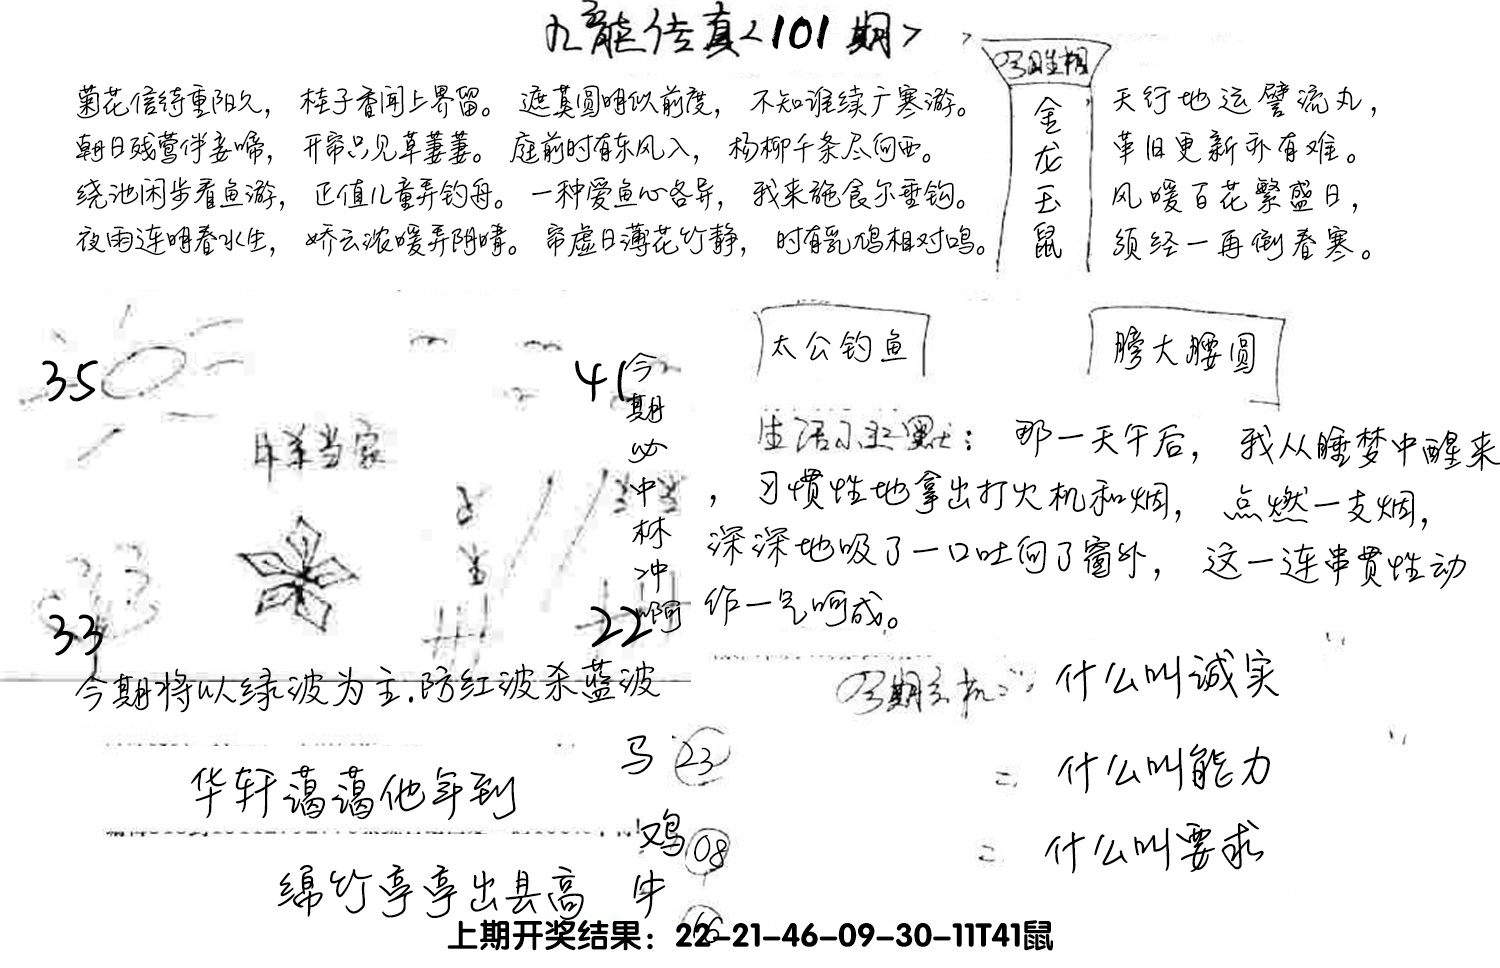 九龙传真<101期>
菊花信待重阳久， 桂子香闻上界留。 遮莫圆明似前度， 不知谁续广寒游。
朝日残莺伴妾啼， 开帘只见草萋萋。 庭前时有东风入， 杨柳千条尽向西。
绕池闲步看鱼游， 正值儿童弄钓舟。 一种爱鱼心各异， 我来施食尔垂钩。
夜雨连明春水生， 娇云浓暖弄阴晴。 帘虚日薄花竹静， 时有乳鸠相对鸣。
今日生相
金龙玉鼠
天行地运譬流丸，
革旧更新亦有难。
风暖百花繁盛日，
须经一再倒春寒。
35
41
牛羊当家
33
22
今期必中林冲啊
今期将以绿波为主.防红波杀蓝波
太公钓鱼
膀大腰圆
生活小幽默： 那一天午后， 我从睡梦中醒来
，习惯性地拿出打火机和烟， 点燃一支烟，
深深地吸了一口吐向了窗外， 这一连串贯性动
作一气呵成。
今期玄机: 什么叫诚实
= 什么叫能力
= 什么叫要求
华轩蔼蔼他年到
绵竹亭亭出县高
马 23
鸡 08
牛
上期开奖结果：22-21-46-09-30-11T41鼠